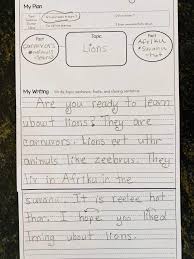 My Plan
Fact
Topic
Fact
carnuvors
Lions
Afriku
savanu
hot
My Writing
Are you ready to learn
about lions? They are
carnuvors. Lions eet uthr
animuls like zeebrus. They
liv in Afriku in the
savanu. It is reelee hot
thar. I hope you liked
lrning about lions.